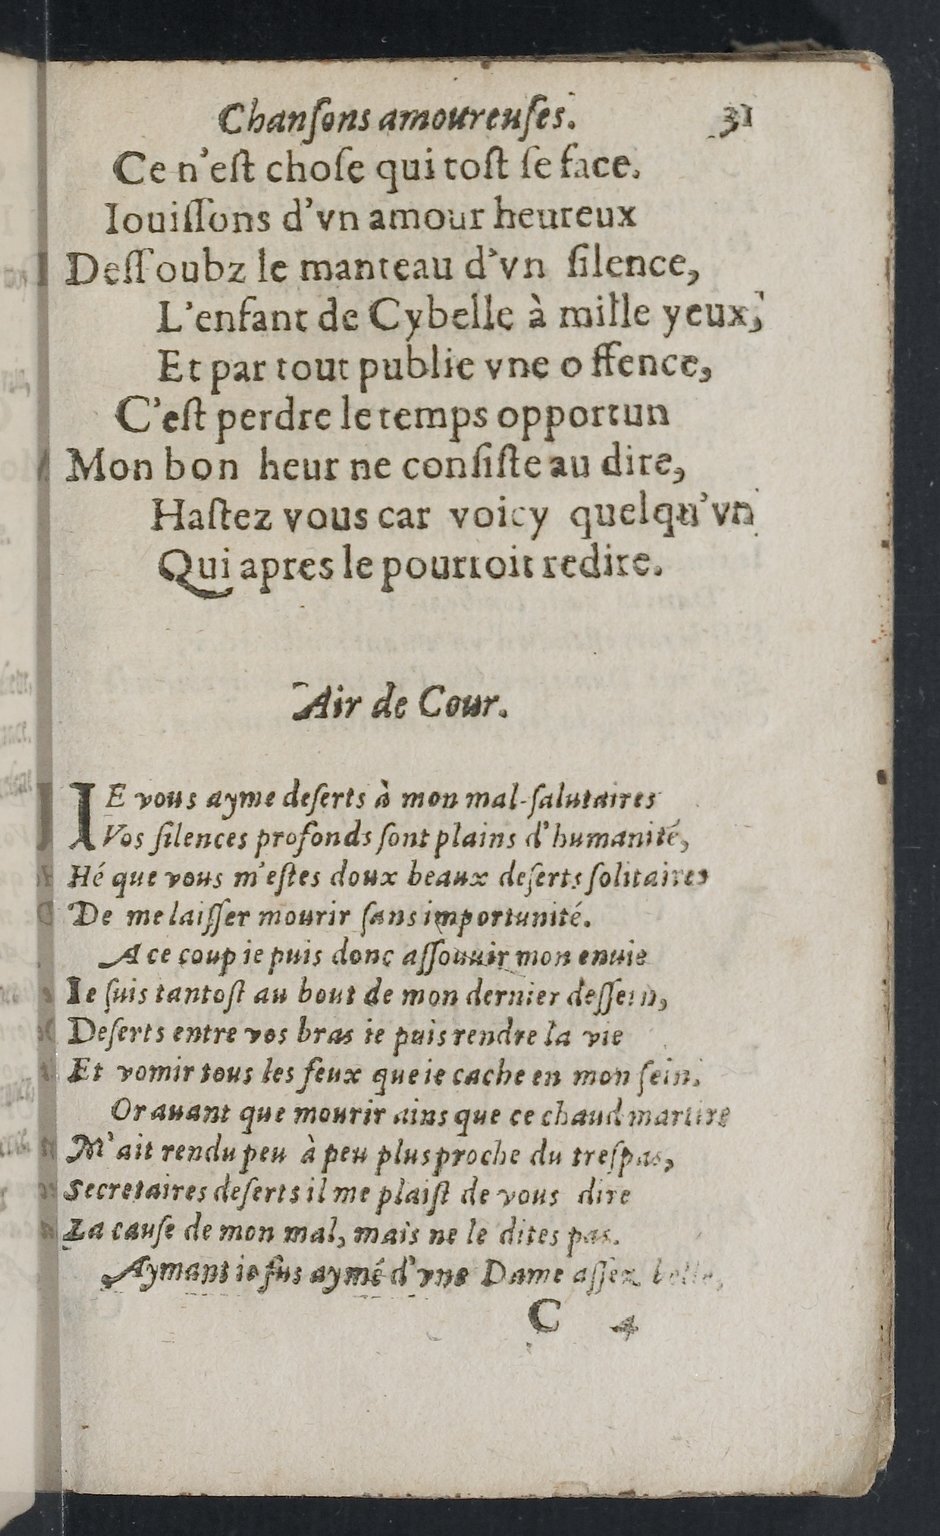 Chanſons amoureuſes. 31
Ce n'eſt choſe qui toſt ſe face.
Iouiſſons d'vn amour heureux
Deſſoubz le manteau d'vn ſilence,
L'enfant de Cybelle à mille yeux,
Et par tout publie vne offence,
C'eſt perdre le temps opportun
Mon bon heur ne conſiſte au dire,
Haſtez vous car voicy quelqu'vn
Qui apres le pourroit redire.
Air de Cour.
IE vous ayme deſerts à mon mal-ſalutaires
Vos ſilences profonds ſont plains d'humanité,
Hé que vous m'eſtes doux beaux deſerts ſolitaires
De me laiſſer mourir ſans importunité.
A ce coup ie puis donc aſſouuir mon enuie
Ie ſuis tantoſt au bout de mon dernier deſſein,
Deſerts entre vos bras ie puis rendre la vie
Et vomir tous les feux que ie cache en mon ſein.
Or auant que mourir ains que ce chaud martire
M'ait rendu peu à peu plus proche du treſpas,
Secretaires deſerts il me plaiſt de vous dire
La cauſe de mon mal, mais ne le dites pas.
Aymant ie fus aymé d'vne Dame aſſez belle,
C 4